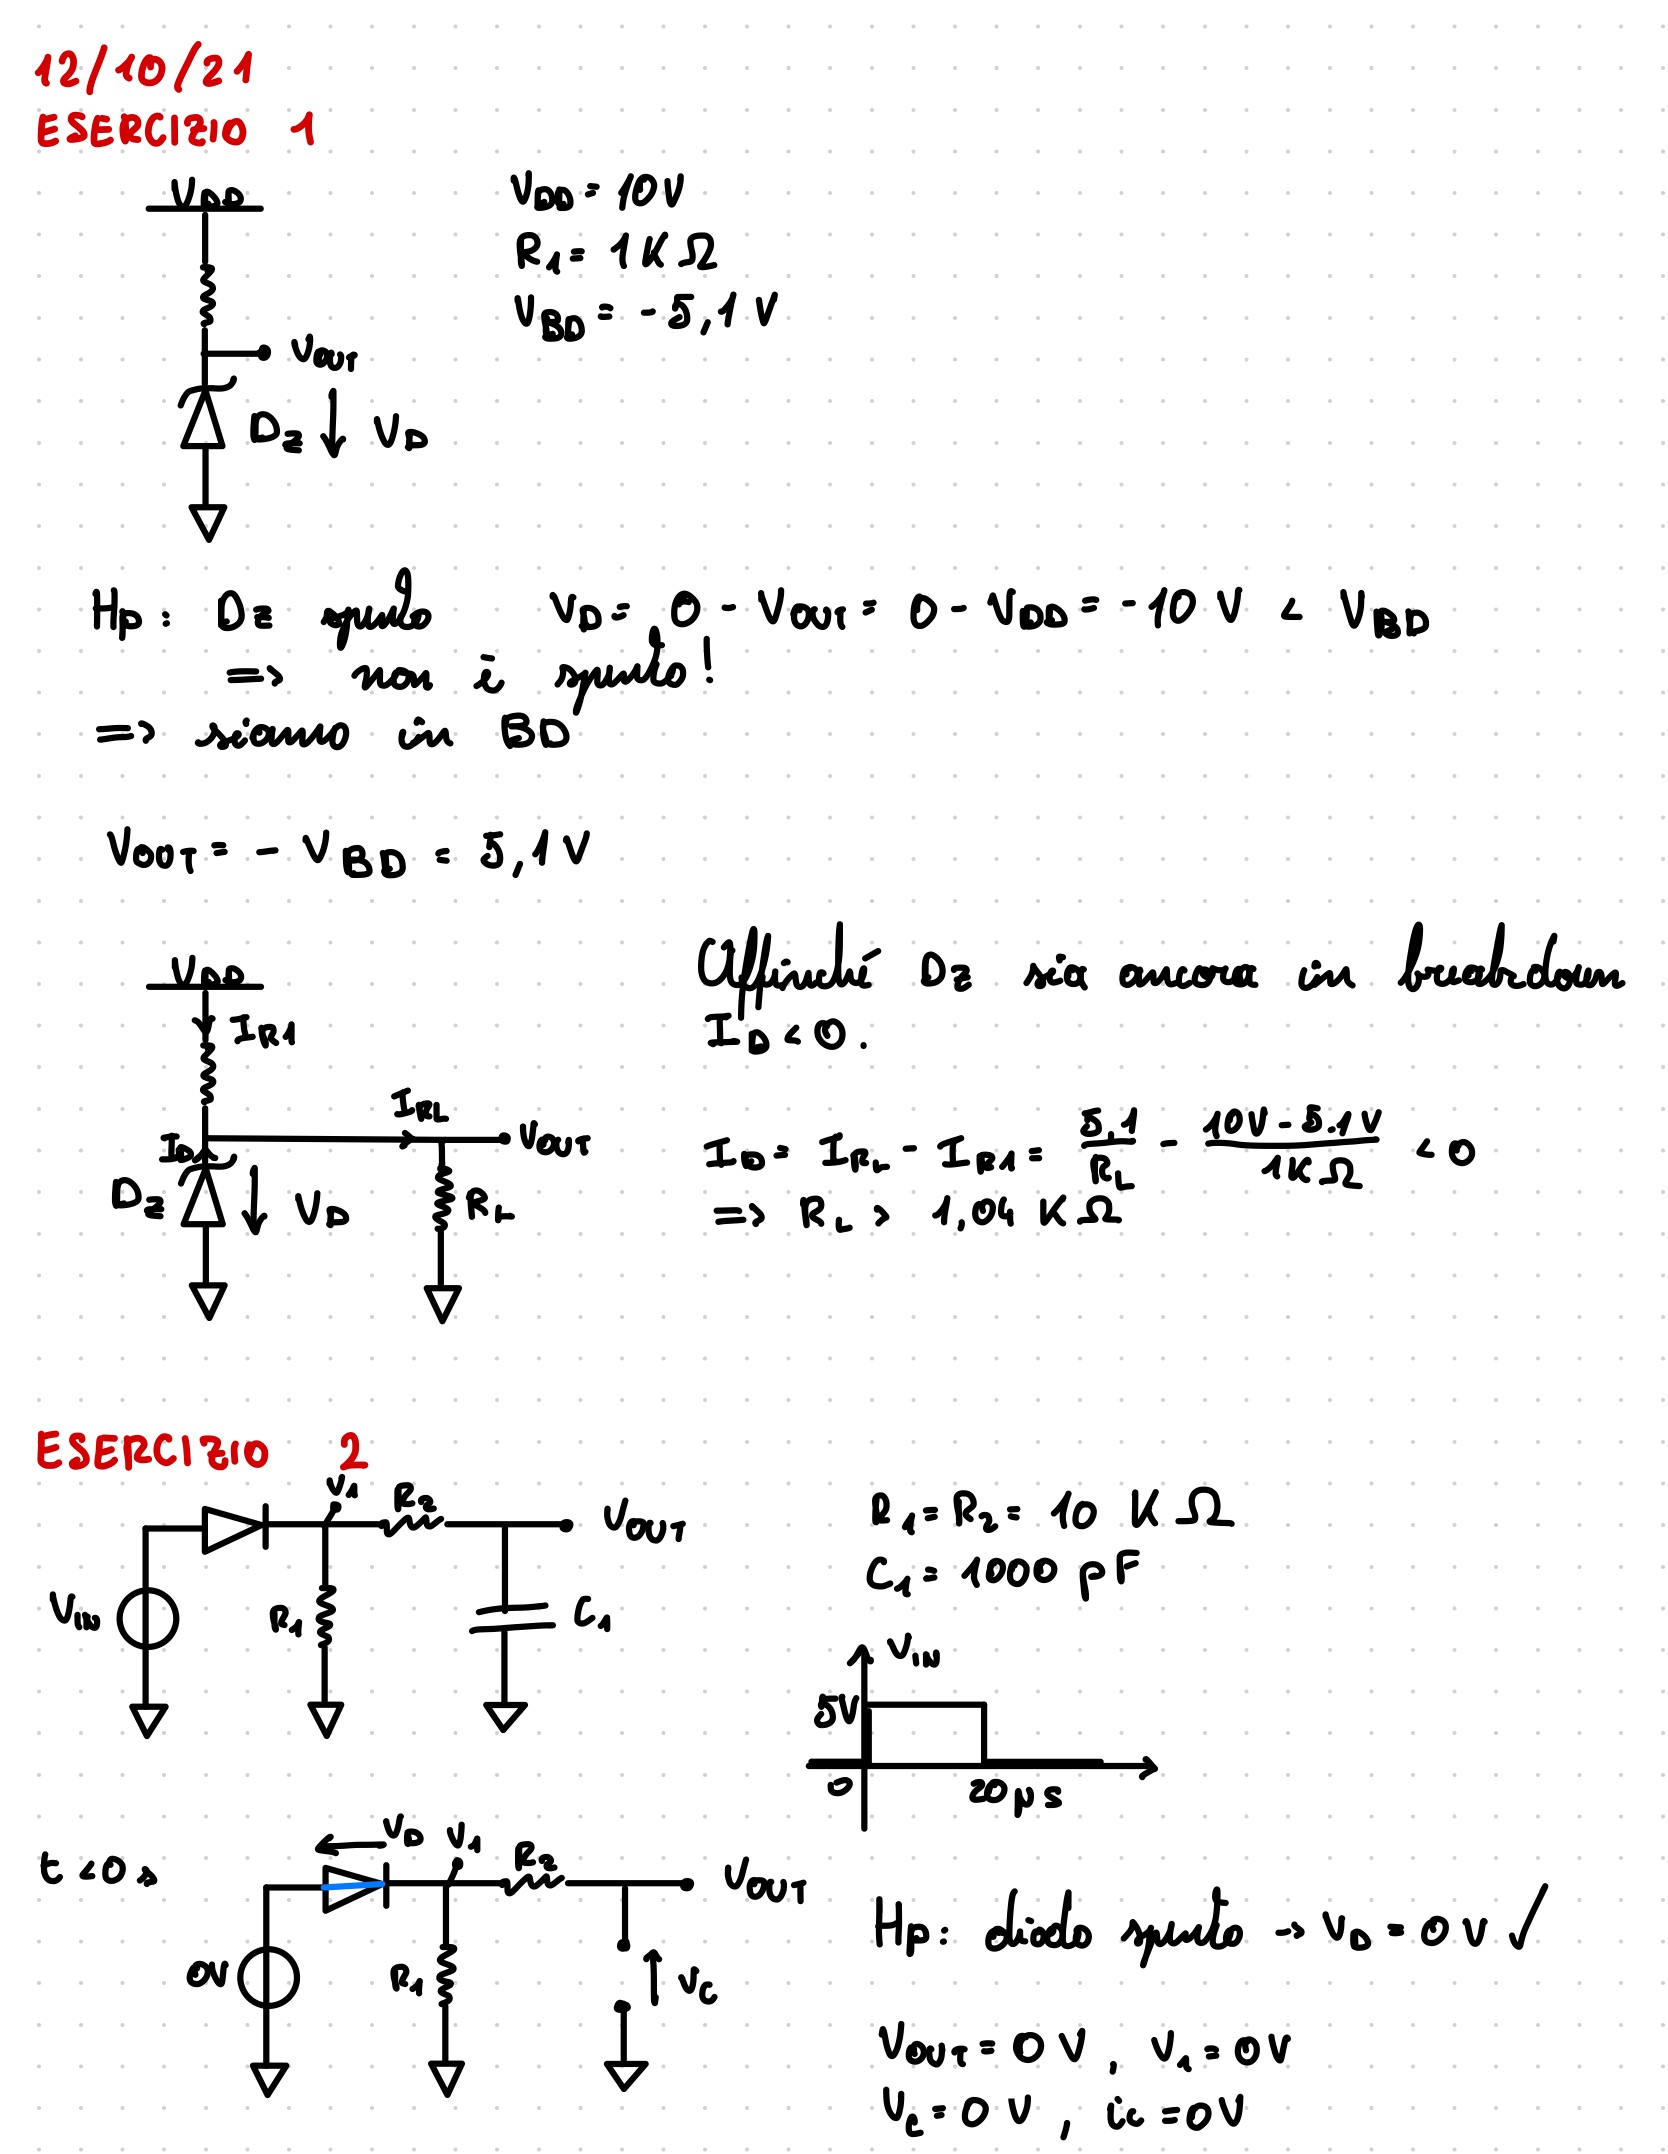 12/10/21
ESERCIZIO 1
VDD
VDD = 10V
R1 = 1KΩ
VBD = -5,1 V
VOUT
DZ ↓ VD
Hp: DZ spento VD = 0 - VOUT = 0 - VDD = -10 V < VBD
=> non è spento!
=> siamo in BD
VOUT = - VBD = 5,1 V
VDD
IR1
Affinché DZ sia ancora in breakdown
ID < 0.
IRL
VOUT
ID
DZ ↓ VD
RL
ID = IRL - IR1 = 5,1/RL - (10V - 5.1V)/1KΩ < 0
=> RL > 1,04 KΩ
ESERCIZIO 2
V1
R2
VOUT
VIN
R1
C1
R1 = R2 = 10 KΩ
C1 = 1000 pF
VIN
5V
0
20 μs
t < 0 s
VD
V1
R2
VOUT
0V
R1
VC
Hp: diodo spento → VD = 0 V ✓
VOUT = 0 V, V1 = 0V
VC = 0 V, ic = 0V